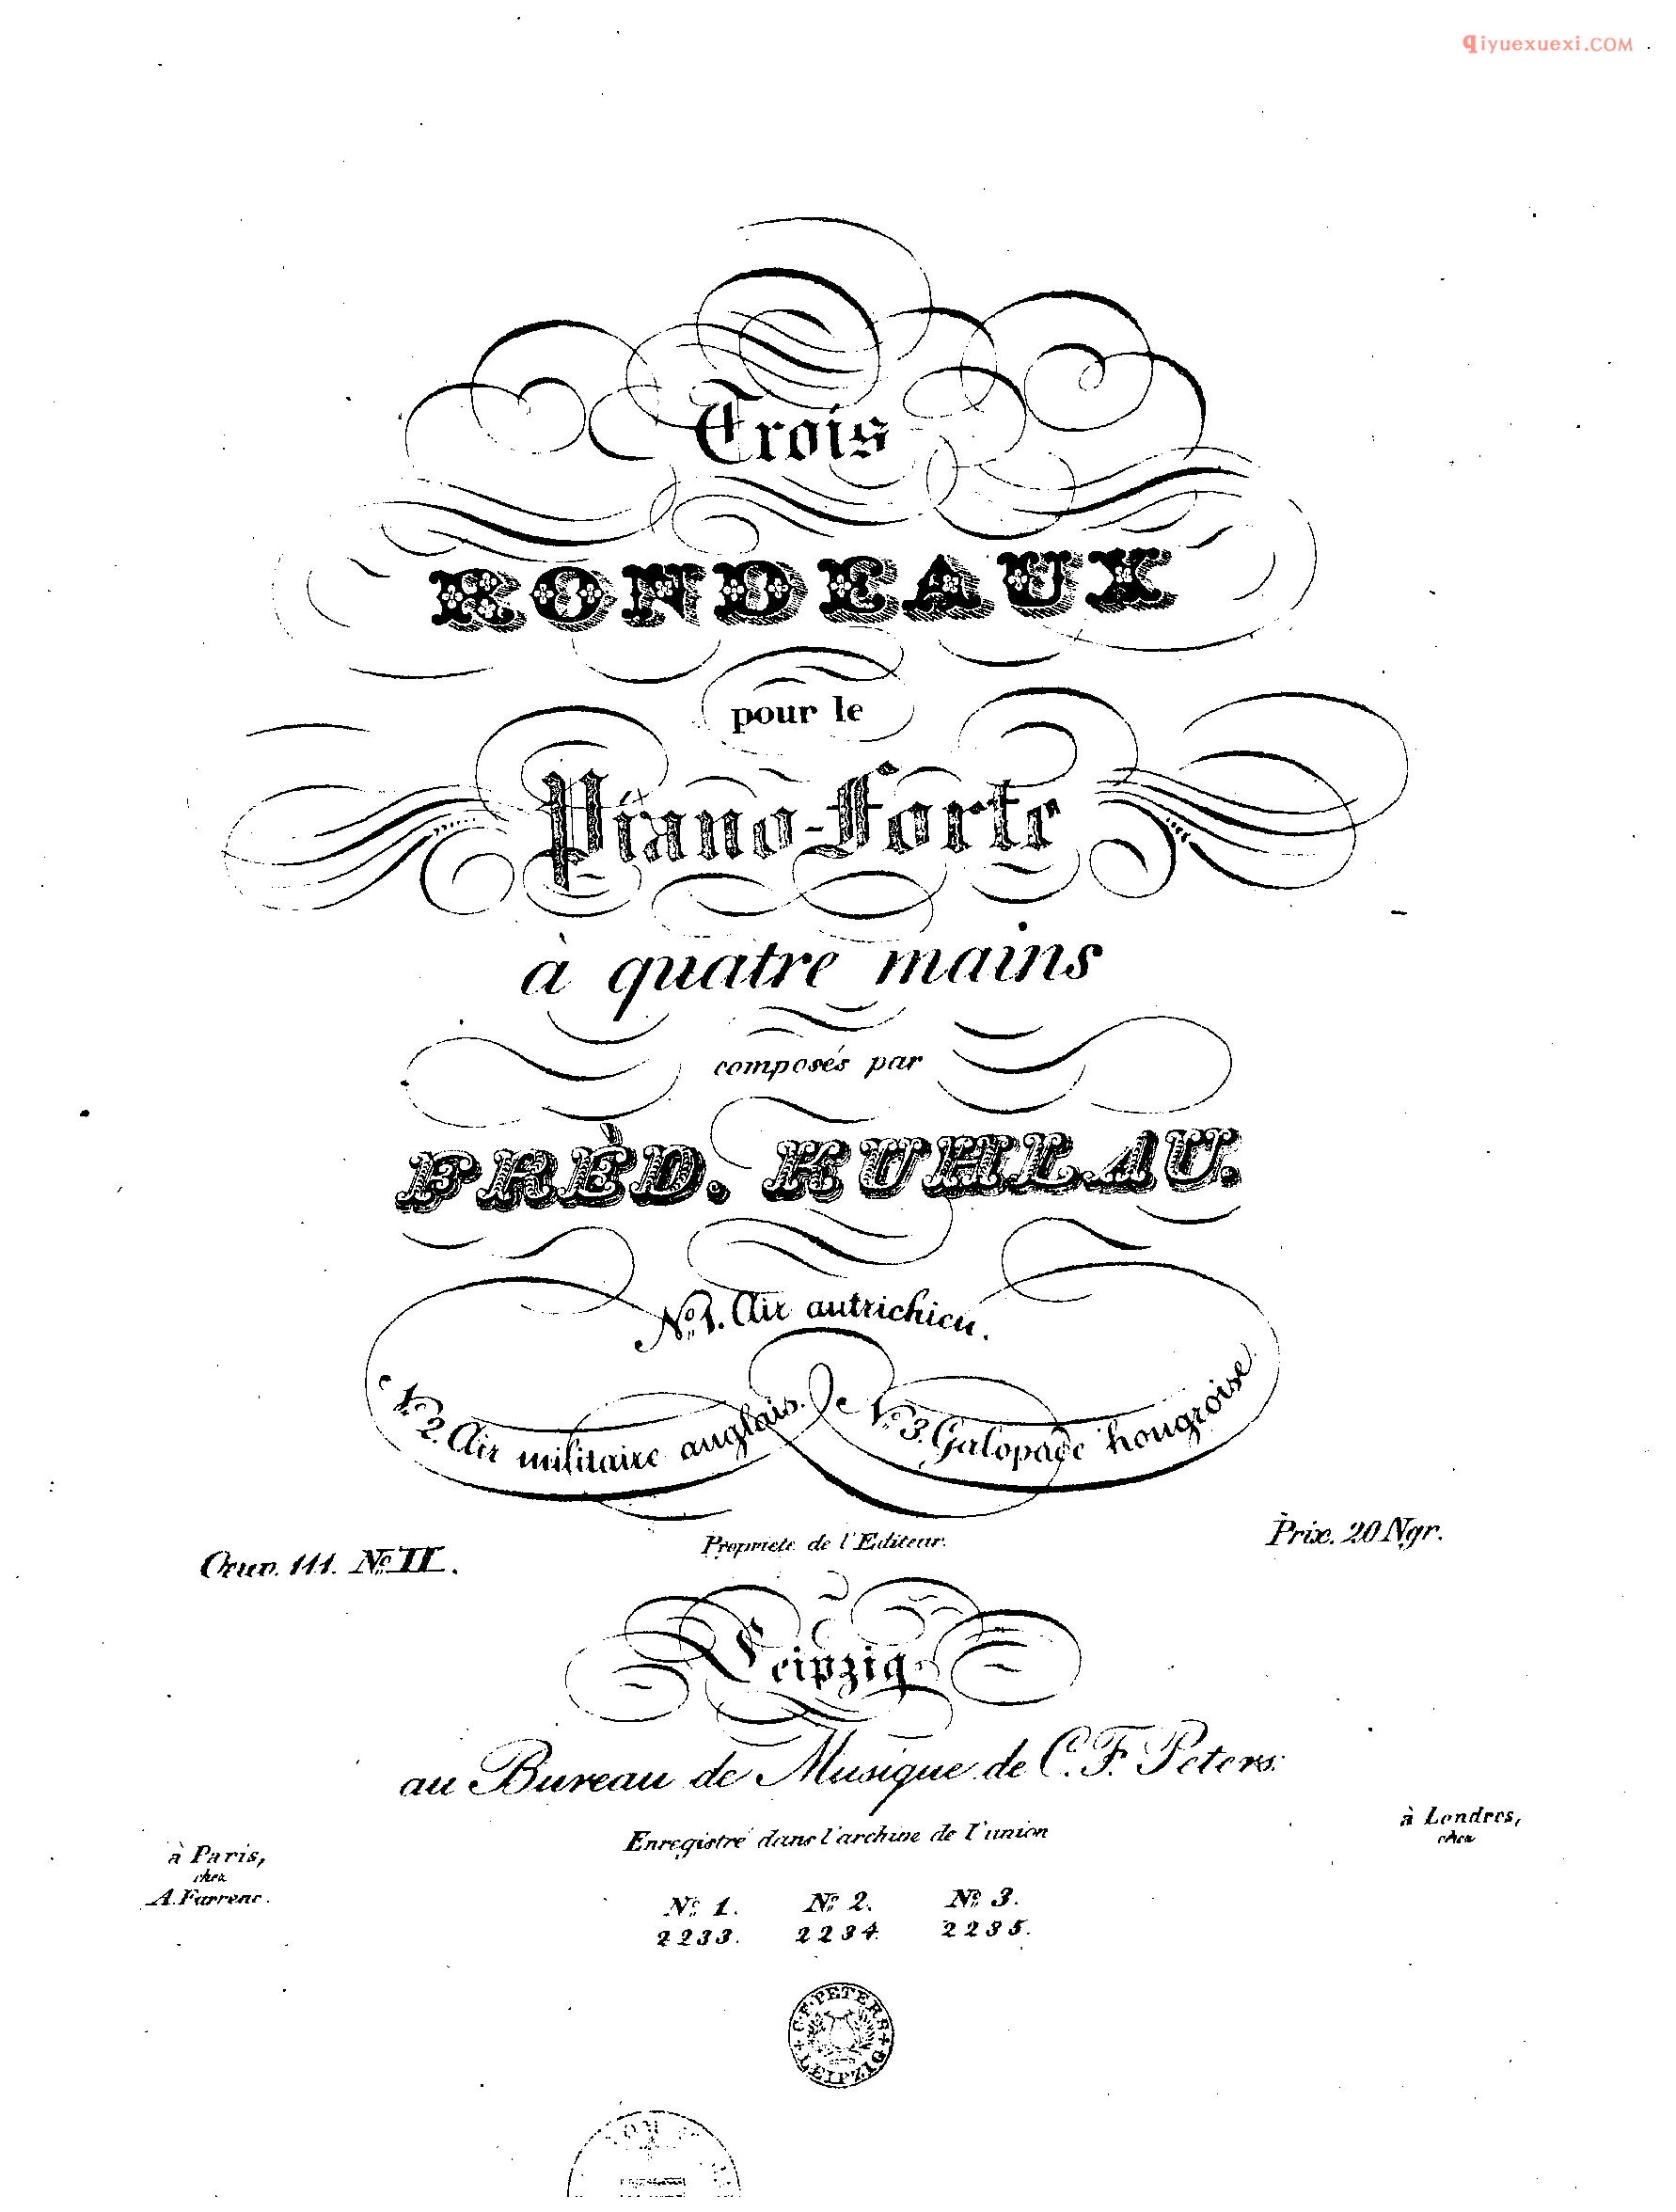 qiyuexuexi.COM
Trois
RONDEAUX
pour le
Piano-Forte
à quatre mains
composés par
FRÈD. KUHLAU.
No. 1. Air autrichien.
No. 2. Air militaire anglais.
No. 3. Galopade hongroise.
Propriété de l'Editeur.
Oeuv. 111. No. II.
Prix. 20 Ngr.
Leipzig
au Bureau de Musique de C. F. Peters.
Enregistré dans l'archive de l'union
à Paris,
chez
A. Farrenc.
à Londres,
chez
No. 1. No. 2. No. 3.
2233. 2234. 2235.
C. F. PETERS
LEIPZIG